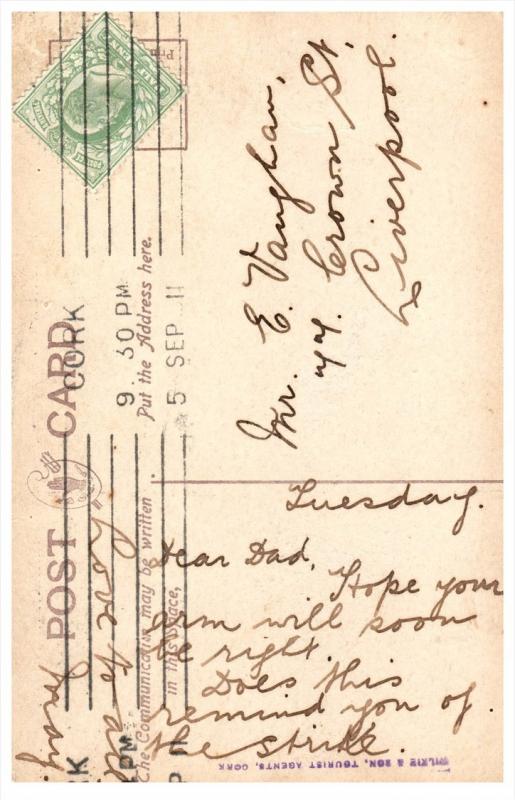 POST CARD
The Communication may be written
in this space,
Put the Address here.
CORK
9.30 PM
5 SEP 11
Mr. E. Vaughan,
Crown St,
Liverpool.
Tuesday.
Dear Dad,
Hope your
arm will soon
be right.
Does this
remind you of
the strike.
Love to all
WILKIE & SON, TOURIST AGENTS, CORK
RK
PM
P 11